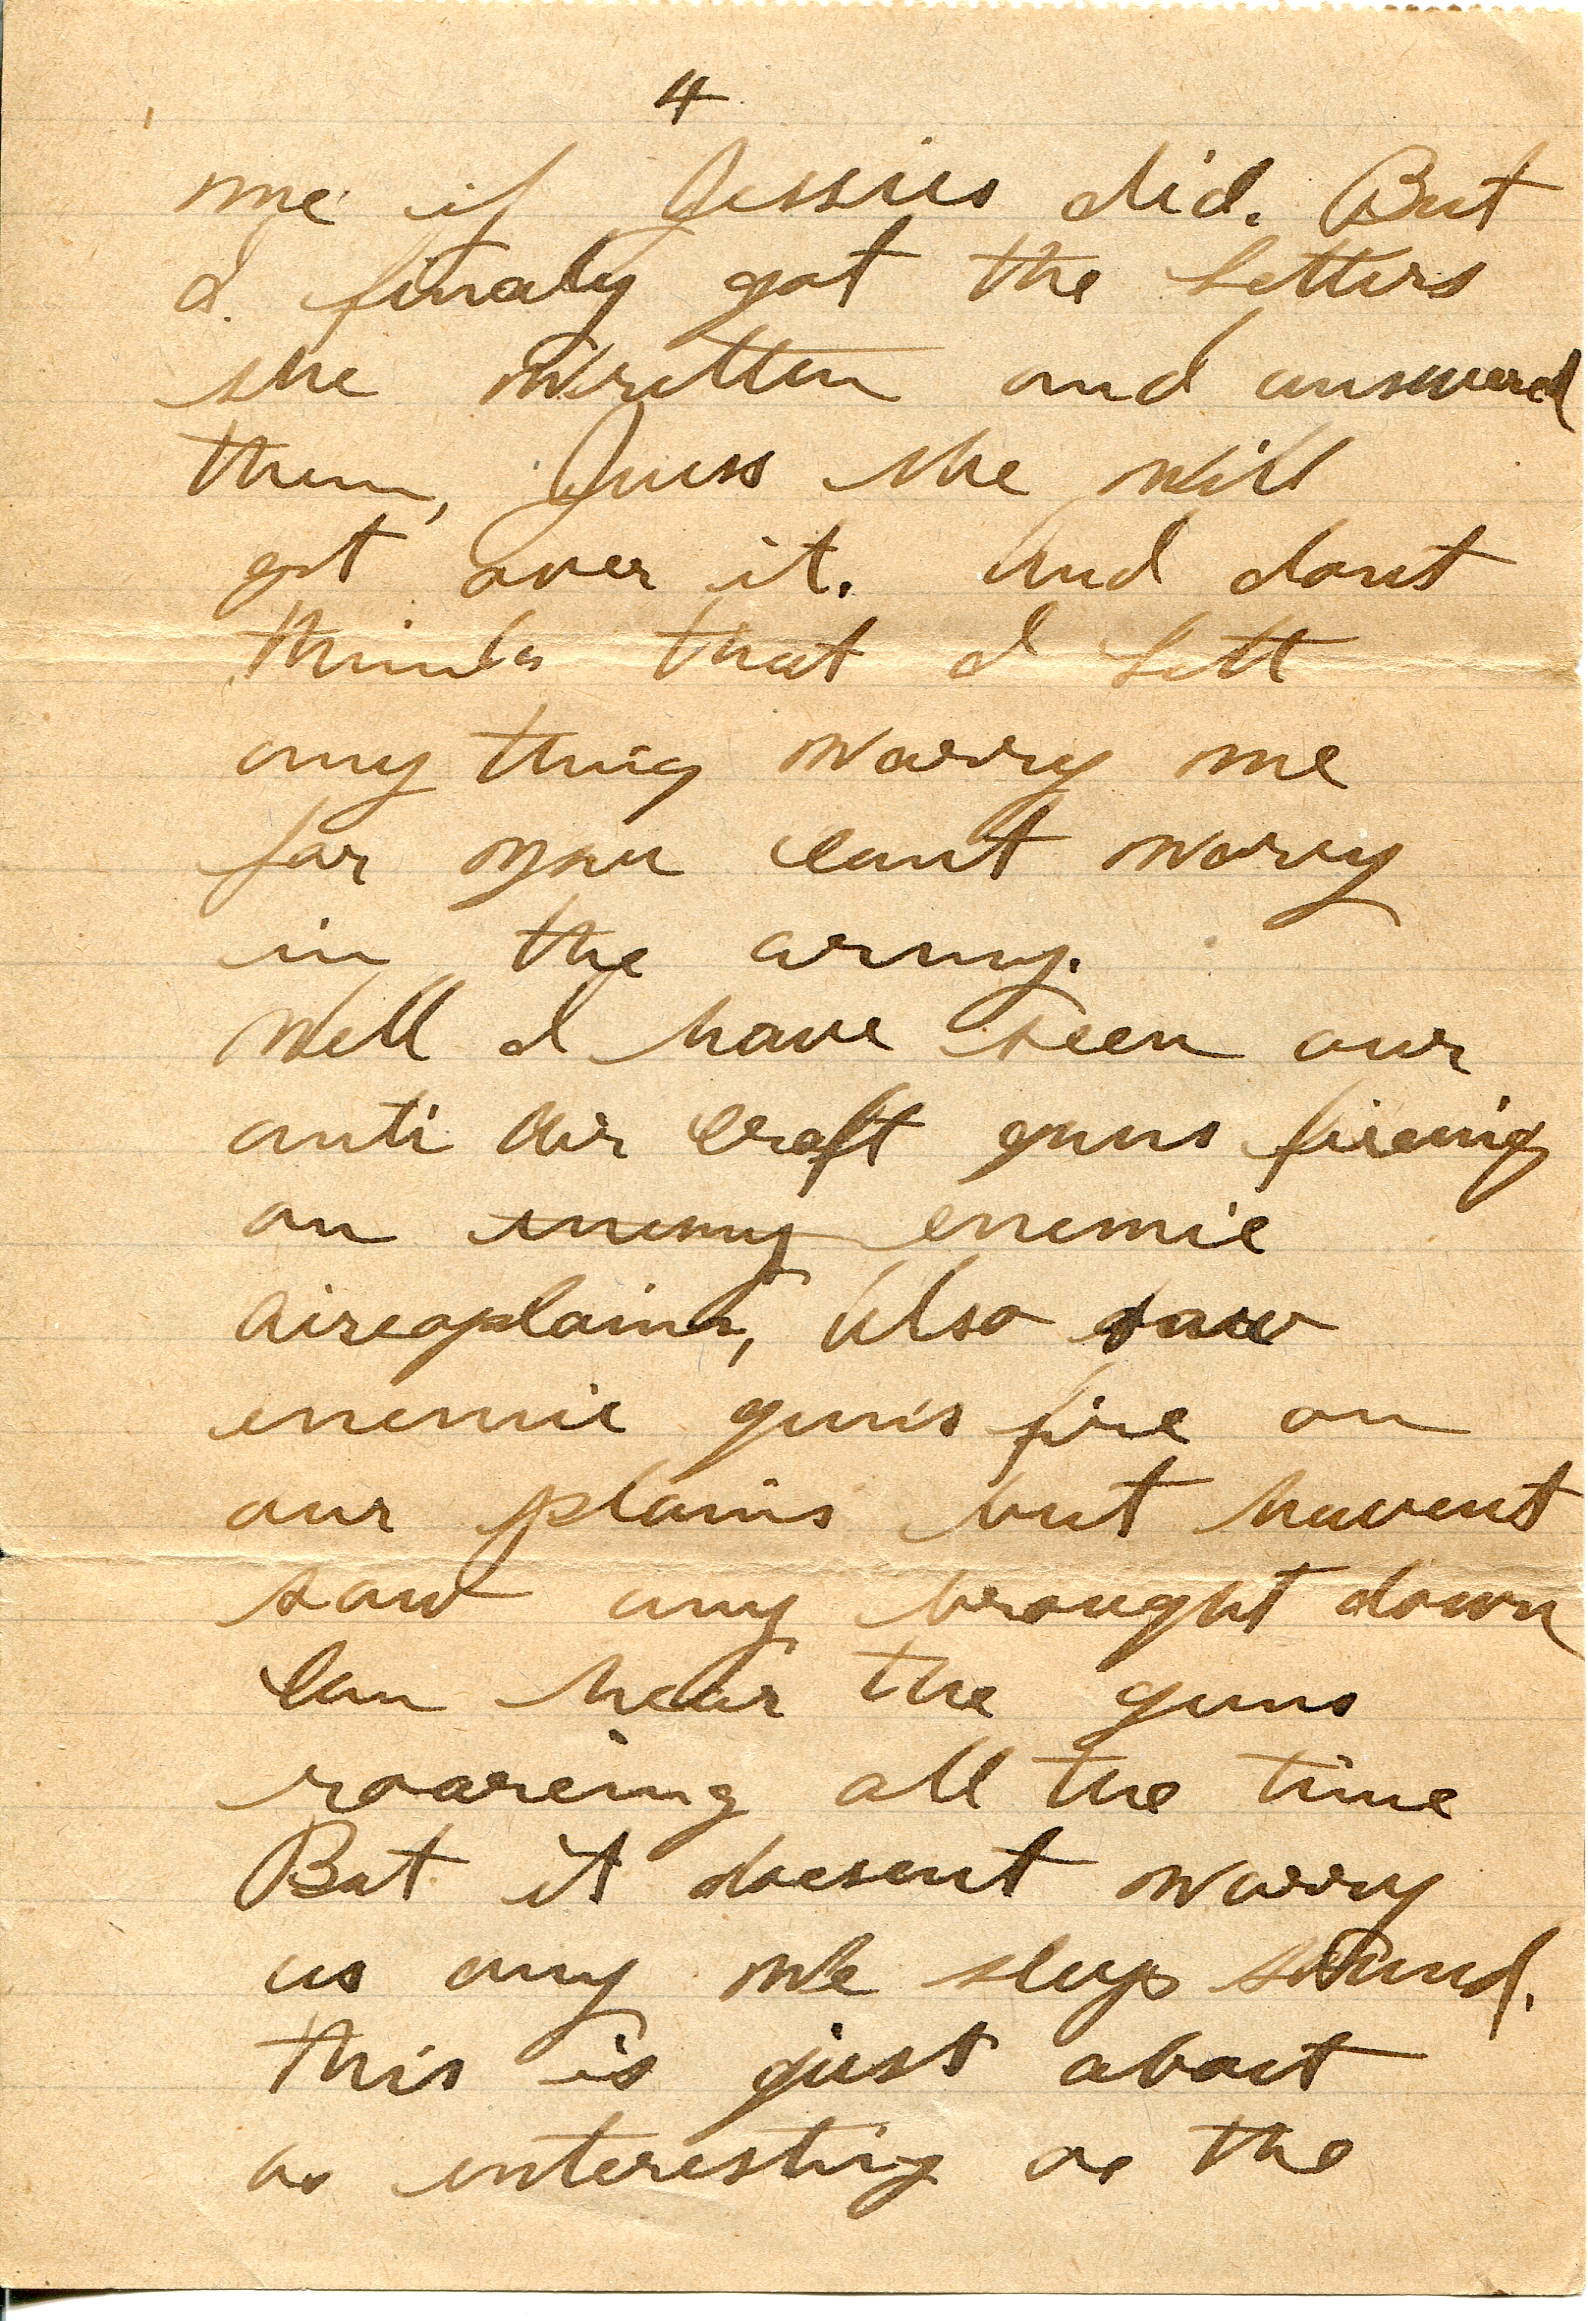 4
me if Jessies did. But
I finaly got the letters
she written and answered
them, Guess she will
get over it. And dont
think that I lett
any thing worry me
for you cant worry
in the army.
Well I have seen our
anti Air craft guns fireing
on enemy enemie
aireoplains, Also saw
enemie guns fire on
our plains but havent
saw any brought down
Can hear the guns
roareing all the time
But it doesent worry
us any We sleep sound.
this is just about
as interesting as the